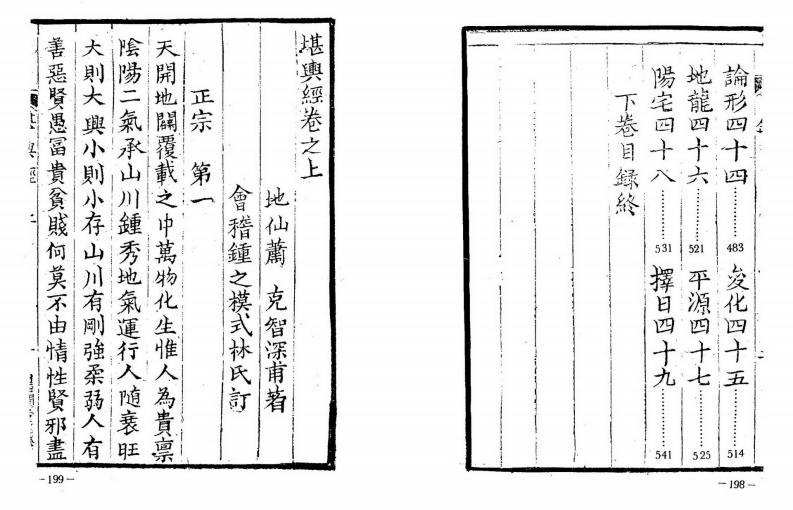 論形四十四………483 夋化四十五………514
地龍四十六………521 平源四十七………525
陽宅四十八………531 擇日四十九………541
下巻目録終
－198－
堪輿經卷之上
地仙蕭 克智深甫著
會稽鍾之模式林氏訂
正宗 第一
天開地闢覆載之中萬物化生惟人為貴禀
陰陽二氣承山川鍾秀地氣運行人随衰旺
大則大興小則小存山川有剛強柔弱人有
善惡賢愚冨貴貧賤何莫不由情性賢邪盡
－199－